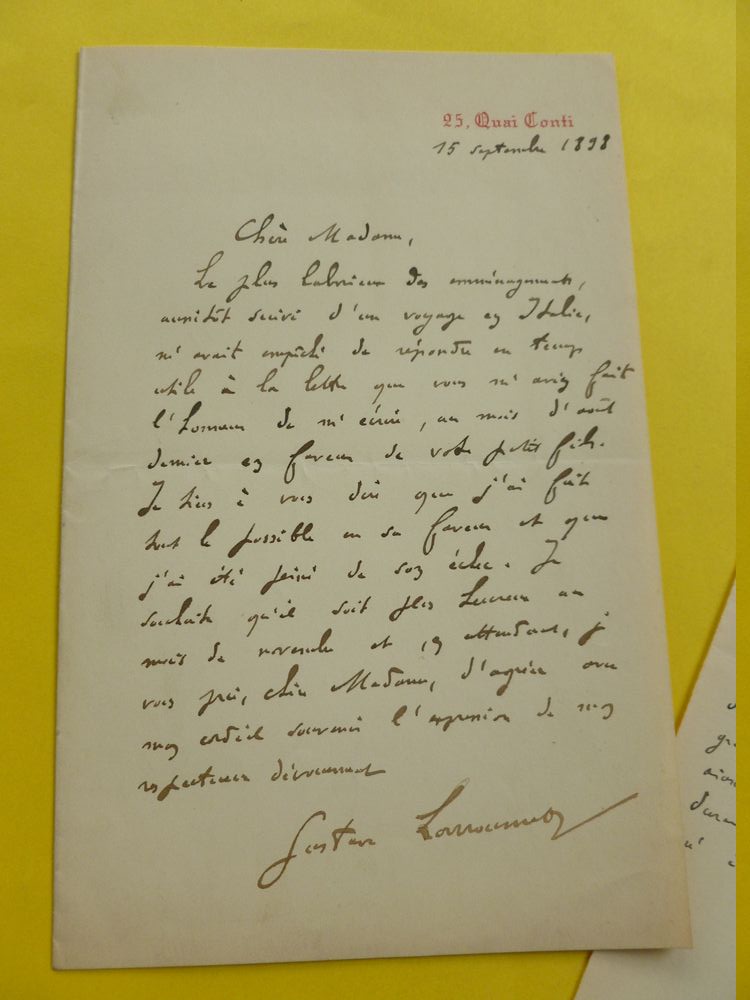 25, Quai Conti
15 septembre 1898
Chère Madame,
Le plus laborieux des emménagements,
aussitôt suivi d'un voyage en Italie,
m'avait empêché de répondre en temps
utile à la lettre que vous m'aviez fait
l'honneur de m'écrire, au mois d'août
dernier en faveur de votre petit fils.
Je tiens à vous dire que j'ai fait
tout le possible en sa faveur et que
j'ai été peiné de son échec. Je
souhaite qu'il soit plus heureux au
mois de novembre et, en attendant, je
vous prie, chère Madame, d'agréer avec
mon cordial souvenir l'expression de mon
respectueux dévouement
Gustave Larroumet